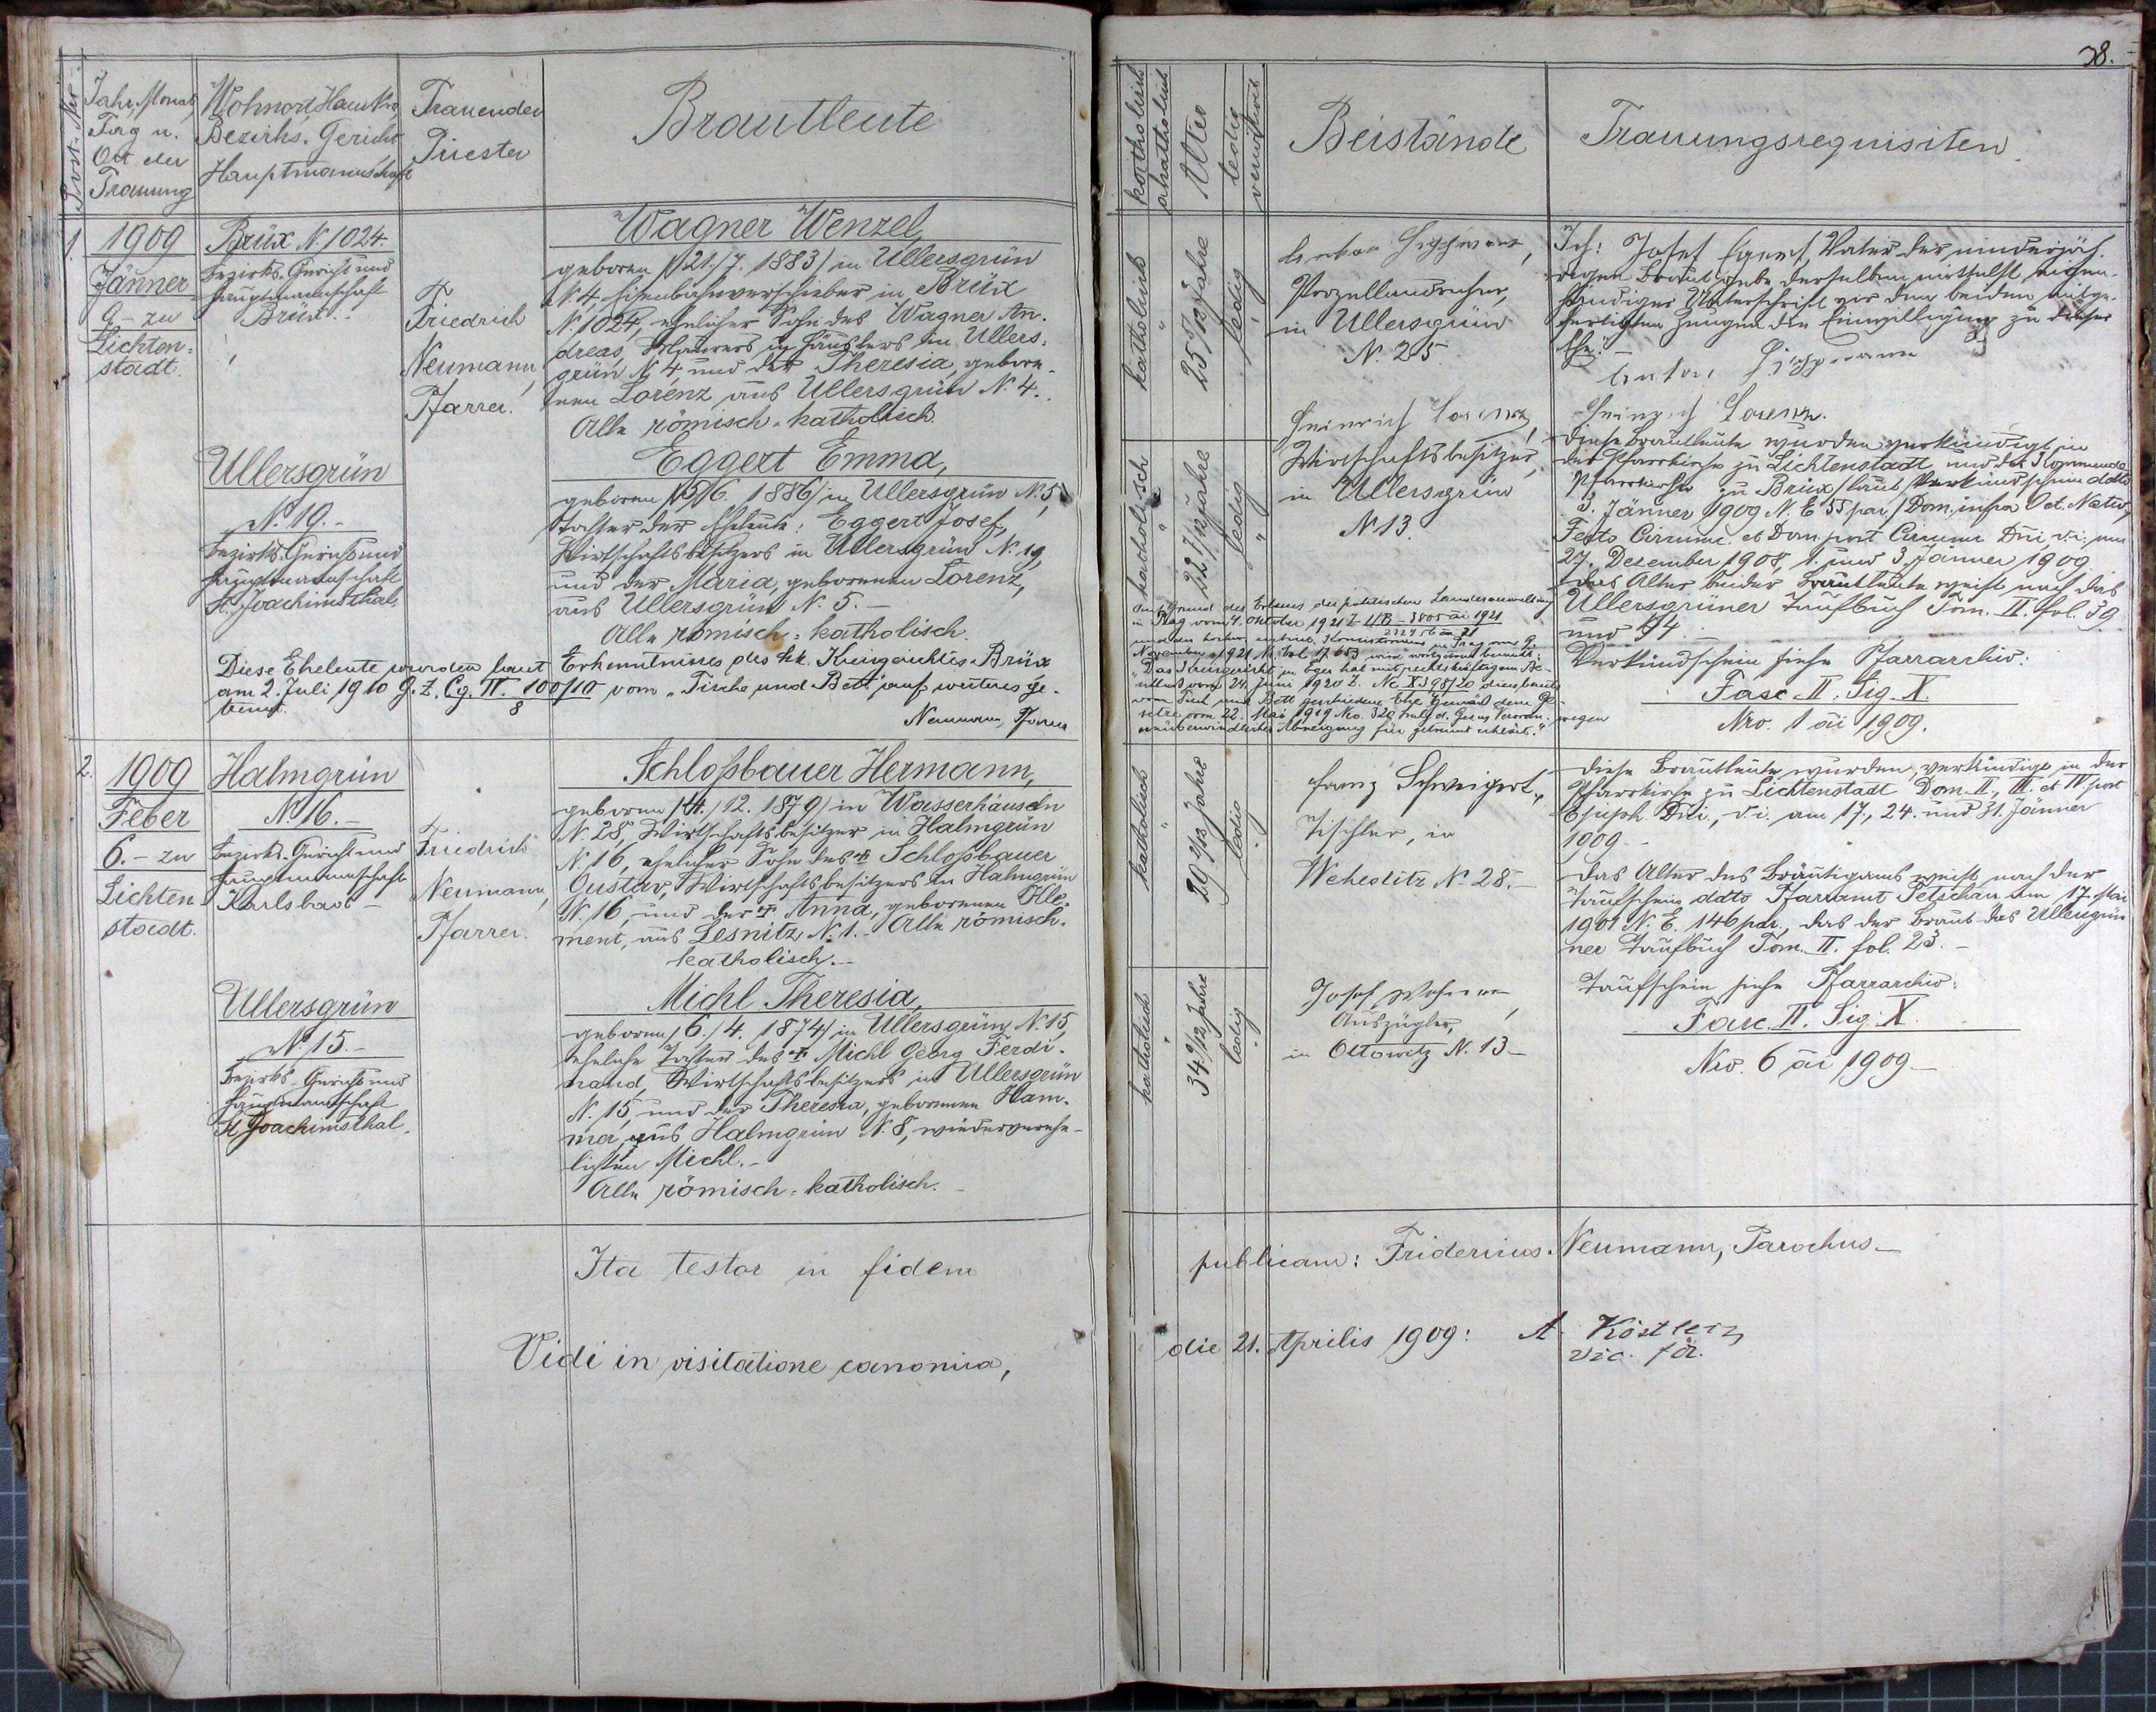 38.
Post-Nr.
Jahr, Monat,
Tag u.
Ort der
Trauung
Wohnort, Haus Nro,
Bezirks-Gericht
Hauptmannschaft
Trauender
Priester
Brautleute
katholisch
akatholisch
Alter
ledig
verwitwet
Beistände
Trauungsrequisiten
1.
1909
Jänner
9.- zu
Lichten-
stadt.
Brüx N. 1024.
Bezirks-Gericht und
Hauptmannschaft
Brüx.
Ullersgrün
N. 19.-
Bezirks-Gericht und
Hauptmannschaft
St. Joachimsthal.
Friedrich
Neumann,
Pfarrer.
Wagner Wenzel,
geboren /21./7. 1883/ in Ullersgrün
N. 4, Eisenbahnverschieber in Brüx
N. 1024, ehelicher Sohn des Wagner An-
dreas, Maurers u. Häuslers in Ullers-
grün N. 4 und der Theresia, gebore-
nen Lorenz aus Ullersgrün N. 4.
Alle römisch-katholisch.
Eggert Emma,
geboren /5./6. 1886/ in Ullersgrün N. 5,
Tochter der Eheleute: Eggert Josef,
Wirtschaftsbesitzers in Ullersgrün N. 19,
und der Maria, geborenen Lorenz,
aus Ullersgrün N. 5.-
Alle römisch-katholisch.
Diese Eheleute wurden laut Erkenntnisses des kk. Kreisgerichtes Brüx
am 2. Juli 1910 G. Z. Cg. IV. 100/10 vom "Tische und Bett" auf weiteres ge-
8
trennt.
Neumann, Pfarrer
katholisch
25 5/12 Jahre
ledig
katholisch
22 7/12 Jahre
ledig
Anton Hippmann,
Porzellandreher,
in Ullersgrün
N. 25
Heinrich Lorenz,
Wirtschaftsbesitzer,
in Ullersgrün
N. 13.
Auf Grund des Erlasses der politischen Landesverwaltung
in Prag vom 4. Oktober 1921 Z. 4/B - 3805 ai 1921
November 1921 N. 17.653 wird
"Das Kreisgericht in Eger hat mit rechtskräftigem Be-
schluß vom 24. Juni 1920 Z. Nc X 398/20 diese bereits
vom Tisch und Bett geschiedene Ehe gemäß dem Ge-
setze vom 22. Mai 1919 Nro. 320 d. Ges. u. Verordn. wegen
unüberwindlicher Abneigung für getrennt erklärt."
Ich: Josef Eggert, Vater der minderjäh-
rigen Braut gebe derselben mittelst eigen-
händiger Unterschrift vor den beiden mitge-
fertigten Zeugen die Einwilligung zu dieser
Ehe.-
Anton Hippmann
Heinrich Lorenz.
Diese Brautleute wurden verkündigt in
der Pfarrkirche zu Lichtenstadt und der Kommende
Pfarrkirche zu Brüx /laut Verkündschein ddto
3. Jänner 1909 N. E 55 par./ Dom. infra Oct. Nativ.,
Festo Circumc. et Dom. post Circumc. Dni d. i. am
27. Dezember 1908, 1. und 3. Jänner 1909.
Das Alter beider Brautleute weist nach das
Ullersgrüner Taufbuch Tom. II. fol. 39
und 44.-
Verkündschein siehe Pfarrarchiv:
Fasc II. Sig. X.
Nro. 1 ai 1909.
2.
1909
Feber
6.- zu
Lichten
stadt.
Halmgrün
N. 16.-
Bezirks-Gericht und
Hauptmannschaft
Karlsbad-
Ullersgrün
N. 15.-
Bezirks-Gericht und
Hauptmannschaft
St Joachimsthal.
Friedrich
Neumann,
Pfarrer.
Schloßbauer Hermann,
geboren /4./12. 1879/ in Wasserhäuseln
N. 28, Wirtschaftsbesitzer in Halmgrün
N. 16, ehelicher Sohn des † Schloßbauer
Gustav, Wirtschaftsbesitzers in Halmgrün
N. 16 und der † Anna, geborenen Kle-
ment, aus Lesnitz N. 1.- Alle römisch-
katholisch.-
Michl Theresia,
geboren /6./4. 1874/ in Ullersgrün N. 15,
eheliche Tochter des † Michl Georg Ferdi-
nand, Wirtschaftsbesitzers in Ullersgrün
N. 15 und der Theresia, geborenen Ham-
ma, aus Halmgrün N. 8, wiedervereh-
lichten Michl.-
Alle römisch-katholisch.-
katholisch
29 2/12 Jahre
ledig
katholisch
34 9/12 Jahre
ledig
Franz Schweigert,
Tischler, in
Weheditz N. 28.-
Josef
Auszügler,
in Ottowitz N. 13-
Diese Brautleute wurden verkündigt in der
Pfarrkirche zu Lichtenstadt Dom. II., III. et IV post
Epiph. Dni., d. i. am 17., 24. und 31. Jänner
1909.-
Das Alter des Bräutigams weist nach der
Taufschein ddto Pfarramt Petschau am 17. Mai
1901 N. E. 146 par., das der Braut das Ullersgrün
ner Taufbuch Tom. II. fol. 23.-
Taufschein siehe Pfarrarchiv:
Fasc. II. Sig. X.
Nro. 6 ai 1909-
Ita testor in fidem publicam: Fridericus Neumann, Parochus-
Vidi in visitatione canonica, die 21. Aprilis 1909: A. Köstler,
vic. for.